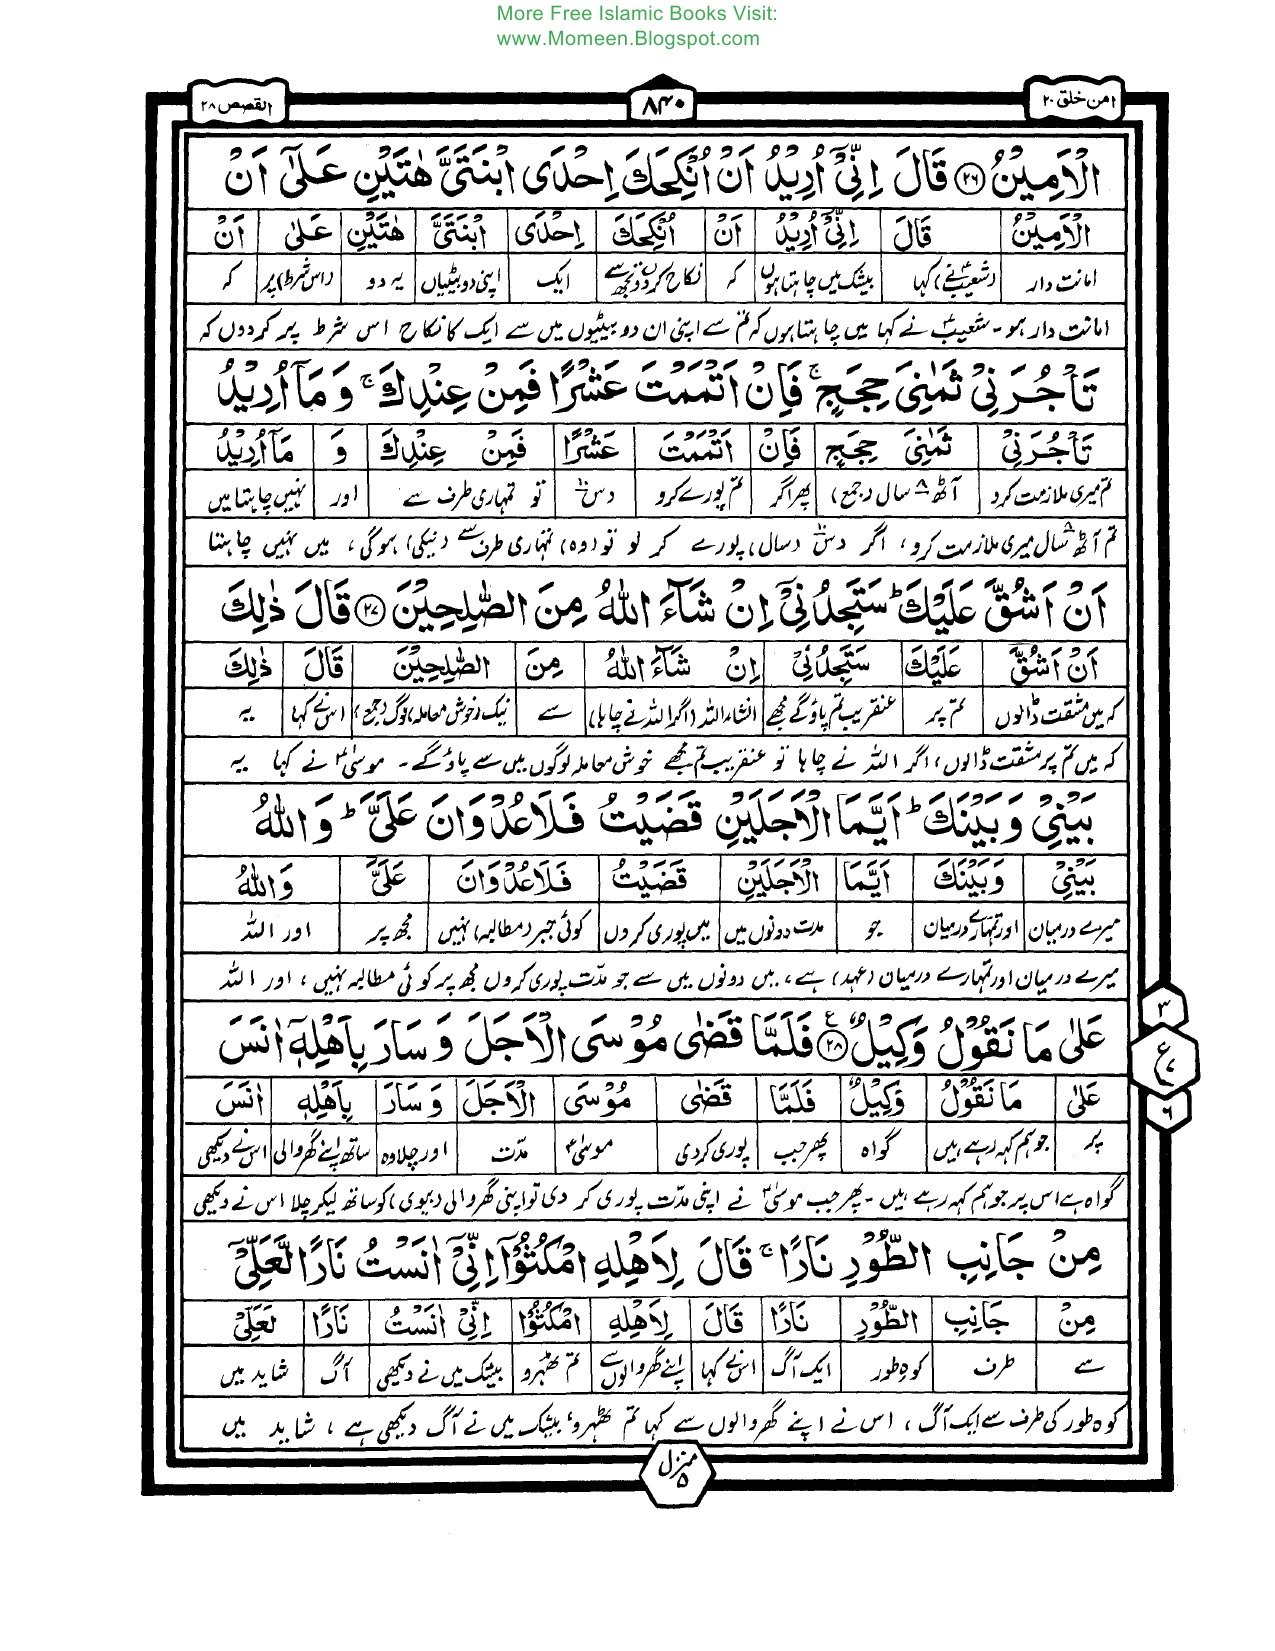 More Free Islamic Books Visit:
www.Momeen.Blogspot.com
امن خلق ۲۰
۸۴۰
القصص ۲۸
الْاَمِیْنُ ﴿۲۶﴾ قَالَ اِنِّیْۤ اُرِیْدُ اَنْ اُنْكِحَكَ اِحْدَی ابْنَتَیَّ هٰتَیْنِ عَلٰۤی اَنْ
الْاَمِیْنُ قَالَ اِنِّیْۤ اُرِیْدُ اَنْ اُنْكِحَكَ اِحْدَی ابْنَتَیَّ هٰتَیْنِ عَلٰۤی اَنْ
امانت دار (شعیبؑ نے) کہا بیشک میں چاہتا ہوں کہ نکاح کردوں تجھ سے ایک اپنی دو بیٹیاں یہ دو (اس شرط) پر کہ
امانت دار ہو - شعیبؑ نے کہا میں چاہتا ہوں کہ تم سے اپنی ان دو بیٹیوں میں سے ایک کا نکاح اس شرط پر کردوں کہ
تَاْجُرَنِیْ ثَمٰنِیَ حِجَجٍ ۚ فَاِنْ اَتْمَمْتَ عَشْرًا فَمِنْ عِنْدِكَ ۚ وَ مَاۤ اُرِیْدُ
تَاْجُرَنِیْ ثَمٰنِیَ حِجَجٍ فَاِنْ اَتْمَمْتَ عَشْرًا فَمِنْ عِنْدِكَ وَ مَاۤ اُرِیْدُ
تم میری ملازمت کرو آٹھ ۸ سال (جمع) پھر اگر تم پورے کرو دس ۱۰ تو تمہاری طرف سے اور نہیں چاہتا میں
تم آٹھ ۸ سال میری ملازمت کرو، اگر دس ۱۰ (سال) پورے کر لو تو (وہ) تمہاری طرف سے (نیکی) ہوگی، میں نہیں چاہتا
اَنْ اَشُقَّ عَلَیْكَ ؕ سَتَجِدُنِیْۤ اِنْ شَآءَ اللّٰهُ مِنَ الصّٰلِحِیْنَ ﴿۲۷﴾ قَالَ ذٰلِكَ
اَنْ اَشُقَّ عَلَیْكَ سَتَجِدُنِیْۤ اِنْ شَآءَ اللّٰهُ مِنَ الصّٰلِحِیْنَ قَالَ ذٰلِكَ
کہ میں مشقت ڈالوں تم پر عنقریب تم پاؤگے مجھے انشاء اللہ (اگر اللہ نے چاہا) سے نیک (خوش معاملہ) لوگ (جمع) اس نے کہا یہ
کہ میں تم پر مشقت ڈالوں، اگر اللہ نے چاہا تو عنقریب تم مجھے خوش معاملہ لوگوں میں سے پاؤگے - موسیٰؑ نے کہا یہ
بَیْنِیْ وَ بَیْنَكَ ؕ اَیَّمَا الْاَجَلَیْنِ قَضَیْتُ فَلَا عُدْوَانَ عَلَیَّ ؕ وَ اللّٰهُ
بَیْنِیْ وَ بَیْنَكَ اَیَّمَا الْاَجَلَیْنِ قَضَیْتُ فَلَا عُدْوَانَ عَلَیَّ وَ اللّٰهُ
میرے درمیان اور تمہارے درمیان جو مدت دونوں میں میں پوری کردوں کوئی جبر (مطالبہ) نہیں مجھ پر اور اللہ
میرے درمیان اور تمہارے درمیان (عہد) ہے، میں دونوں میں سے جو مدّت پوری کروں مجھ پر کوئی مطالبہ نہیں، اور اللہ
عَلٰی مَا نَقُوْلُ وَكِیْلٌ ﴿۲۸﴾ ع فَلَمَّا قَضٰی مُوْسَی الْاَجَلَ وَ سَارَ بِاَهْلِهٖۤ اٰنَسَ
۳
ع
۷
۶
عَلٰی مَا نَقُوْلُ وَكِیْلٌ فَلَمَّا قَضٰی مُوْسَی الْاَجَلَ وَ سَارَ بِاَهْلِهٖۤ اٰنَسَ
پر جو ہم کہہ رہے ہیں گواہ پھر جب پوری کردی موسیٰؑ مدّت اور چلا وہ ساتھ اپنے گھر والی اس نے دیکھی
گواہ ہے اس پر جو ہم کہہ رہے ہیں - پھر جب موسیٰؑ نے اپنی مدّت پوری کر دی تو اپنی گھر والی (بیوی) کو ساتھ لیکر چلا اس نے دیکھی
مِنْ جَانِبِ الطُّوْرِ نَارًا ۚ قَالَ لِاَهْلِهِ امْكُثُوْۤا اِنِّیْۤ اٰنَسْتُ نَارًا لَّعَلِّیْۤ
مِنْ جَانِبِ الطُّوْرِ نَارًا قَالَ لِاَهْلِهِ امْكُثُوْۤا اِنِّیْۤ اٰنَسْتُ نَارًا لَعَلِّیْۤ
سے طرف کوہِ طور ایک آگ اس نے کہا اپنے گھر والوں سے تم ٹھہرو بیشک میں نے دیکھی آگ شاید میں
کوہ طور کی طرف سے ایک آگ، اس نے اپنے گھر والوں سے کہا تم ٹھہرو، بیشک میں نے آگ دیکھی ہے، شاید میں
منزل ۵